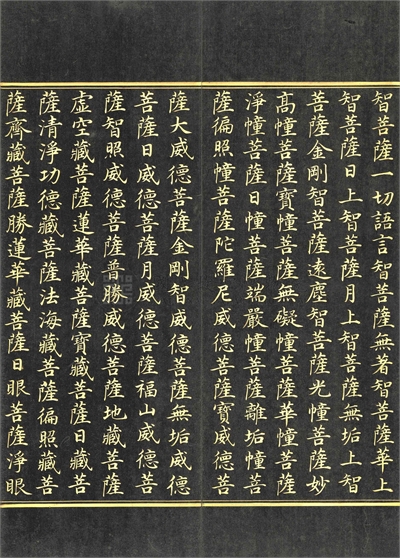 智菩薩一切語言智菩薩無著智菩薩華上
智菩薩日上智菩薩月上智菩薩無垢上智
菩薩金剛智菩薩遠塵智菩薩光幢菩薩妙
高幢菩薩寶幢菩薩無礙幢菩薩華幢菩薩
淨幢菩薩日幢菩薩端嚴幢菩薩離垢幢菩
薩徧照幢菩薩陀羅尼威德菩薩寶威德菩
薩大威德菩薩金剛智威德菩薩無垢威德
菩薩日威德菩薩月威德菩薩福山威德菩
薩智照威德菩薩普勝威德菩薩地藏菩薩
虛空藏菩薩蓮華藏菩薩寶藏菩薩日藏菩
薩清淨功德藏菩薩法海藏菩薩徧照藏菩
薩齊藏菩薩勝蓮華藏菩薩日眼菩薩淨眼